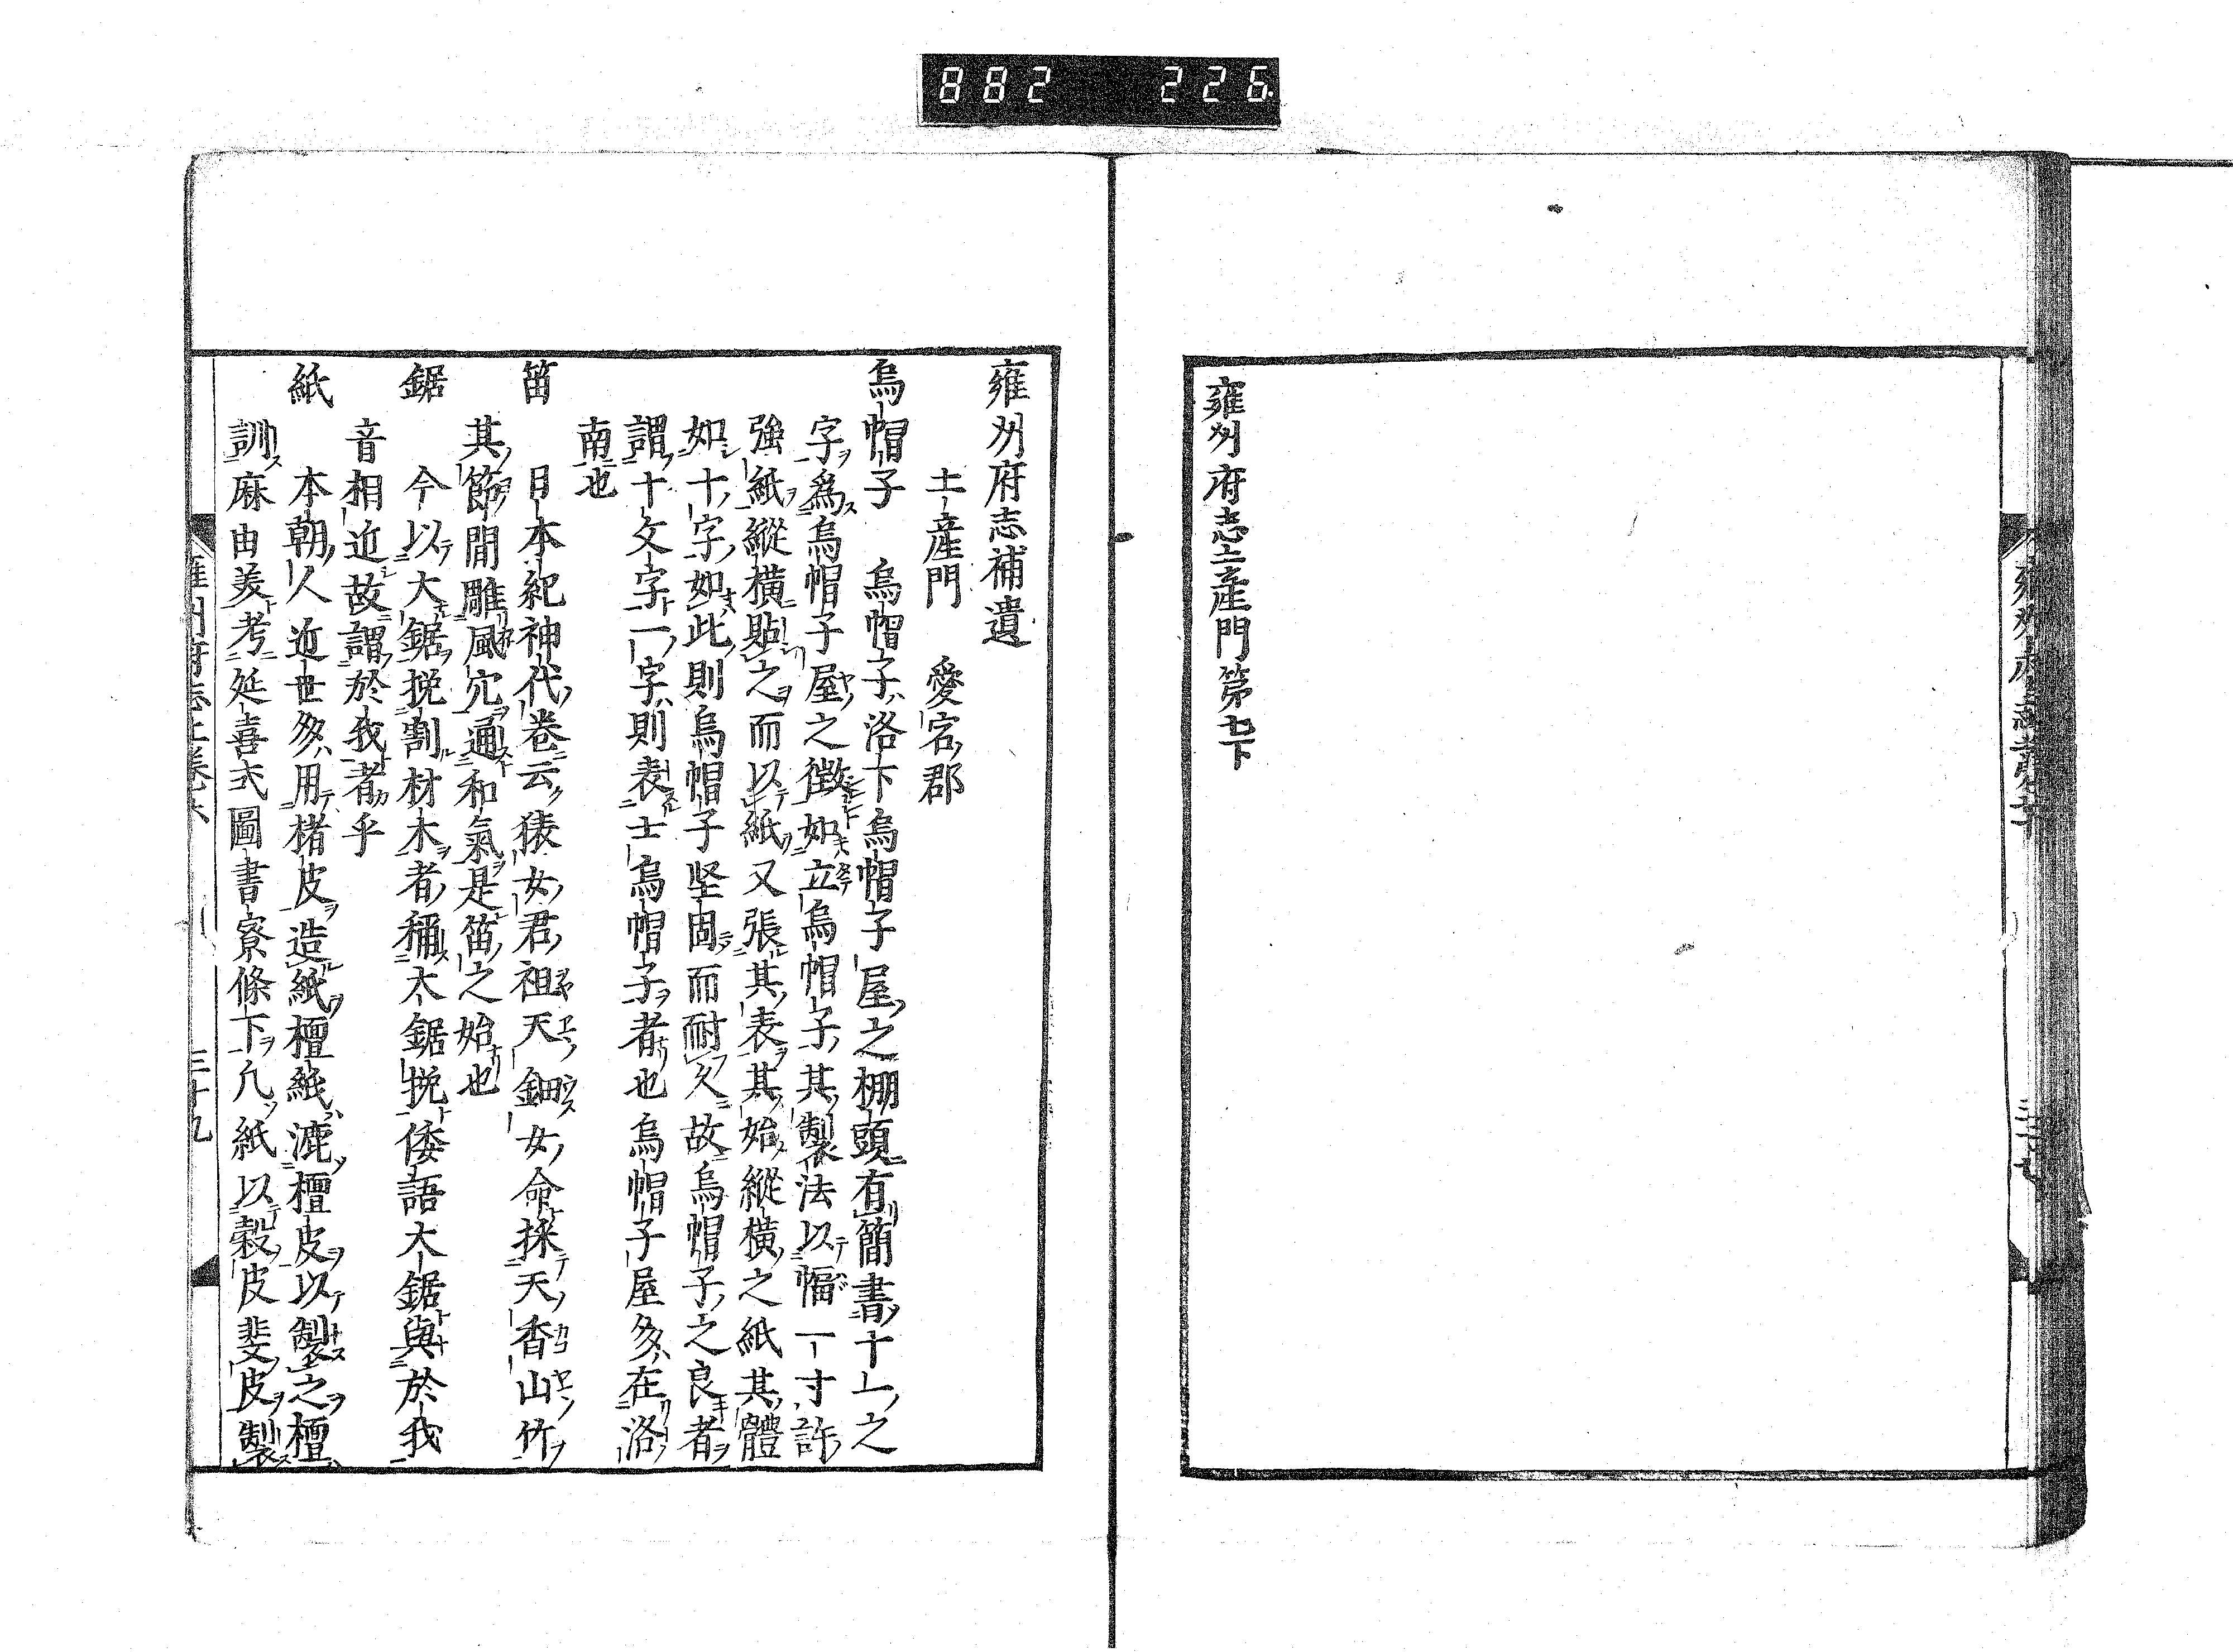 882 226
雍州府志土産門第七下
雍州府志補遺
土産門 愛宕郡
烏帽子 烏帽子洛下烏帽子屋之棚頭有簡書十一之
字爲烏帽子屋之徴如立烏帽子其製法以幅一寸許
強紙縱横貼之而以紙又張其表其始縱横之紙其體
如十字如此則烏帽子坚固而耐久故烏帽子之良者
謂十文字一字則表士烏帽子者也烏帽子屋多在洛
南也
笛 日本紀神代卷云猿女君祖天鈿女命採天香山竹
其節間雕風穴通和氣是笛之始也
鋸 今以大鋸挽割材木者稱大鋸挽倭語大鋸與於我
音相近故謂於我者乎
紙 本朝人近世多用楮皮造紙檀紙漉檀皮以製之檀
訓麻由美考延喜式圖書寮條下凢紙以穀皮斐皮製
三十九